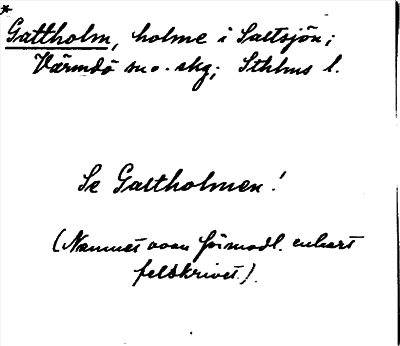 Gattholm, holme i Saltsjön;
Värmdö sn o. skg; Sthlms l.
Se Galtholmen!
(Namnet ovan förmodl. enbart
felskrivet.)